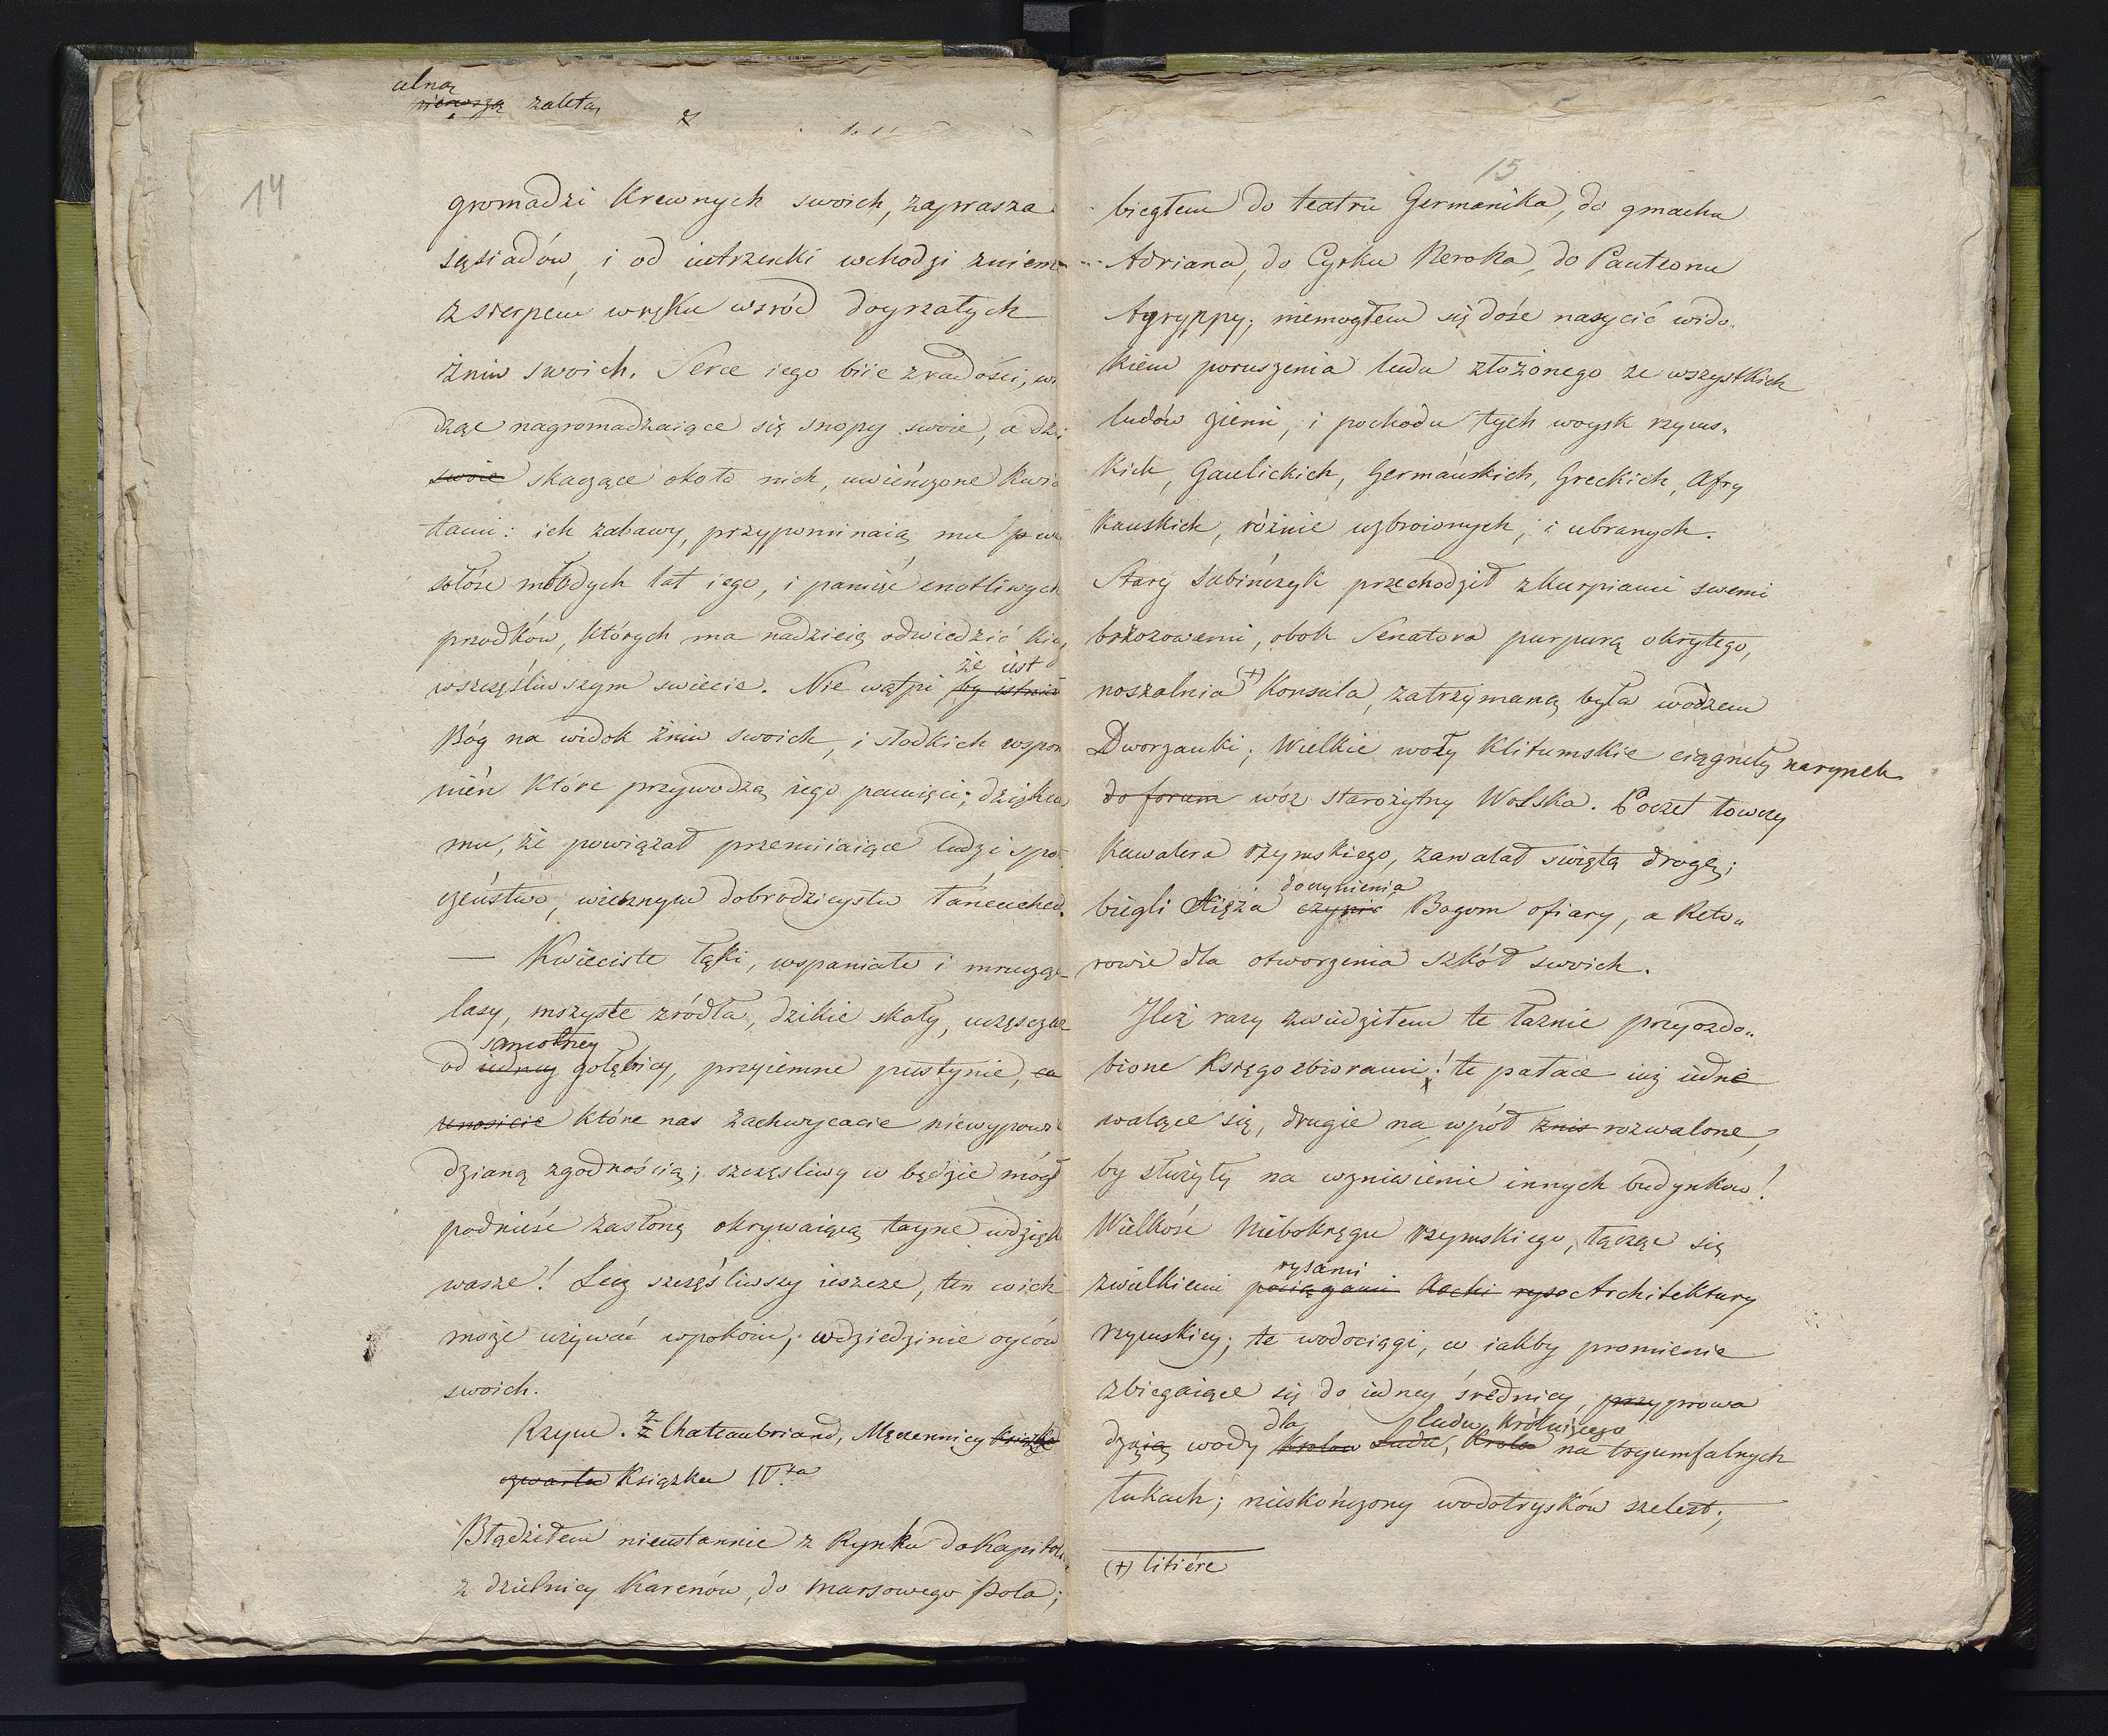 ulną
pierwszą zaletą
14
gromadzi Krewnych swoich, zaprasza
sąsiadów, i od iutrzenki wchodzi zniemi
z sierpem wręku wsród doyrzałych
żniw swoich. Serce iego biie zradości, wi
dząc nagromadzaiące się snopy swoie, a dzi
swoie skaczące około nich, uwieńczone Kwia
tami: ich zabawy, przypominaią mu
sołośc młodych lat iego, i pamięć cnotliwych
przodków, których ma nadzieię odwiedzić
że iest
wszczęśliwszym swiecie. Nie wątpi by istniał
Bóg na widok żniw swoich, i słodkich wspom
nień które przywodzą iego pamięci; dziękuie
mu, że powiązał przemiiaiące ludzi spo
łeczeństwo, wiecznym dobrodzieystw łańcuchem.
— Kwieciste łąki, wspaniałe i mruczące
lasy, mszyste zródła, dzikie skały, uczęszczane
samotney
od iedney gołębicy, przyiemne pustynie, co
unosicie które nas zachwycacie niewypowie
dzianą zgodnością; szczęsliwy co będzie mógł
podnieść zasłonę okrywaiącą tayne wdzięki
wasze! Lecz szczęśliwszy ieszcze, ten co ich
może używać wpokoiu, wdziedzinie oyców
swoich.
Rzym. z Chateaubriand, Męczennicy Książka
czwarta Książka IV.ta
Błądziłem nieustannie z Rynku do Kapitolu
z dzielnicy Karenów, do marsowego Pola;
15
biegłem do teatru Germanika, do gmachu
Adriana, do Cyrku Nerona, do Panteonu
Agryppy; niemogłem się dość nasycić wido,
kiem poruszenia ludu złożonego ze wszystkich
ludów ziemi, i pochodu tych woysk rzyms,
kich, Gaulickich, Germańskich, Greckich, Afry
kańskich, różnie uzbroionych, i ubranych.
Stary Sabińczyk przechodził zkurpiami swemi
brzozowemi, obok Senatora purpurą okrytego,
noszalnia (+) Konsula, zatrzymaną była wodzem
Dworzanki; Wielkie woły Klitumskie ciągnęły narynek
do forum wóz starożytny Wolska. Poczet łowczy
Kawalera rzymskiego, zawalał swiętą drogę;
doczynienia
biegli Xięża czynić Bogom ofiary, a Reto,,
rowie dla otworzenia szkół swoich.
Ileż razy zwiedziłem te łaznie przyozdo,,
bione Księgozbiorami! te pałace iuż iedne
walące się, drugie na wpół znis rozwalone,
by służyły na wzniesienie innych budynkow!
Wielkość Niebokręgu rzymskiego, łącząc się
rysami
zwielkiemi pociągami Archi ryso Architektury
rzymskiey; te wodociągi, co iakby promienie
zbiegaiące się do iedney średnicy, przyprowa
dla ludu króluiącego
dzaią wody krolow Ludu, Krola na tryumfalnych
łukach; nieskończony wodotrysków szelest;
(+) litiére